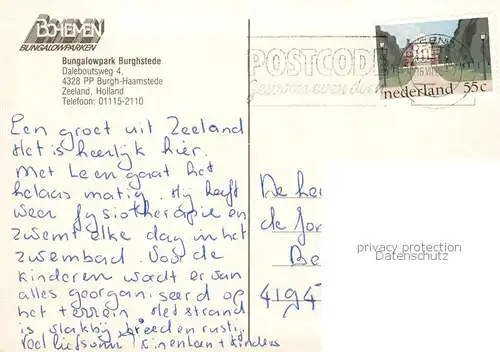 BOHEMEN
BUNGALOWPARKEN
Bungalowpark Burghstede
Daleboutsweg 4,
4328 PP Burgh-Haamstede
Zeeland, Holland
Telefoon: 01115-2110
POSTCODE
Gewoon even doen
nederland 55c
Een groet uit Zeeland
Het is heerlijk hier.
Met Leen gaat het
helaas matig. Hij heeft
weer fysiotherapie en
zwemt elke dag in het
zwembad. Voor de
kinderen wordt er van
alles georganiseerd op
het terrein. Het strand
is vlakbij, breed en rustig.
Veel liefs van Leen + kinders
De he
de Jon
Be
4194
privacy protection
Datenschutz